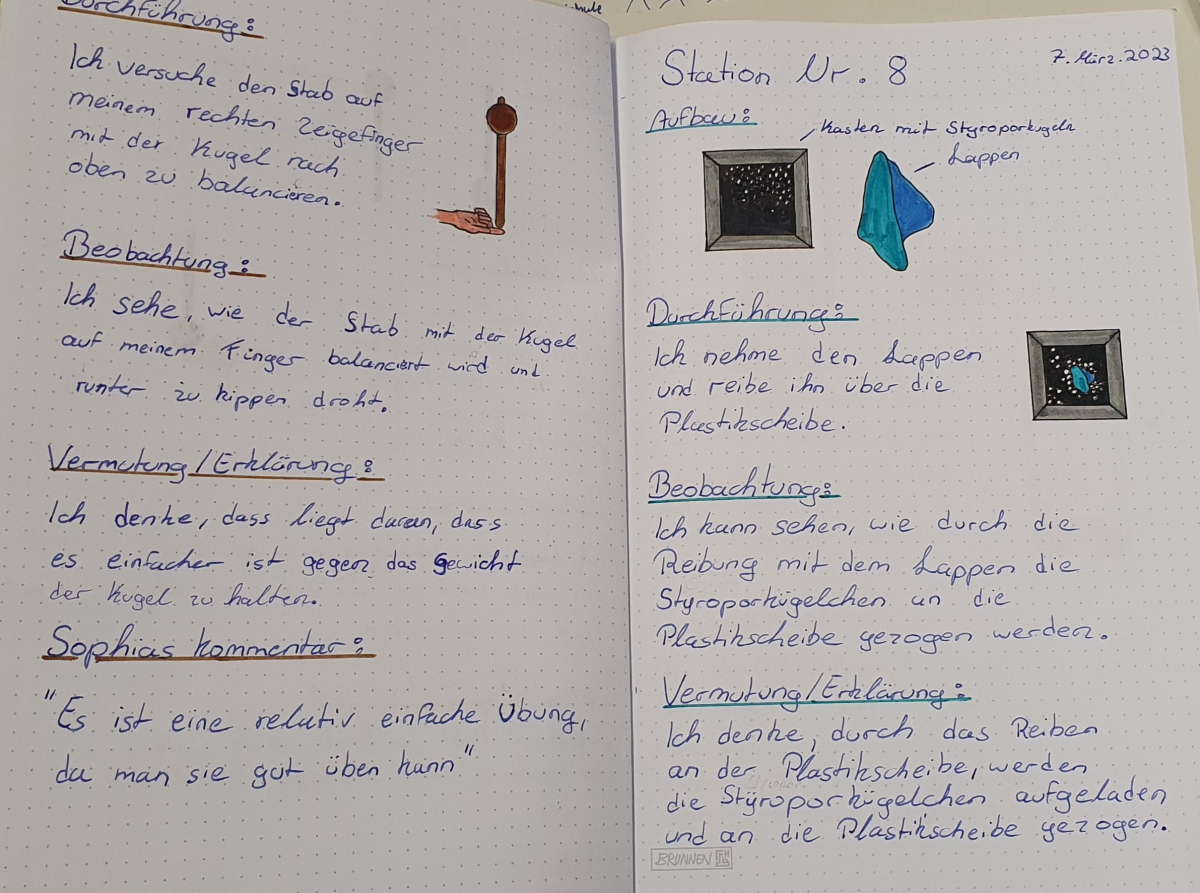 Durchführung:
Ich versuche den Stab auf
meinem rechten Zeigefinger
mit der Kugel nach
oben zu balancieren.
Beobachtung:
Ich sehe, wie der Stab mit der Kugel
auf meinem Finger balanciert wird und
runter zu kippen droht.
Vermutung/Erklärung:
Ich denke, dass liegt daran, dass
es einfacher ist gegen das Gewicht
der Kugel zu halten.
Sophias Kommentar:
"Es ist eine relativ einfache Übung,
da man sie gut üben kann"
Station Nr. 8
7. März. 2023
Aufbau:
Kasten mit Styroporkugeln
Lappen
Durchführung:
Ich nehme den Lappen
und reibe ihn über die
Plastikscheibe.
Beobachtung:
Ich kann sehen, wie durch die
Reibung mit dem Lappen die
Styroporkügelchen an die
Plastikscheibe gezogen werden.
Vermutung/Erklärung:
Ich denke, durch das Reiben
an der Plastikscheibe, werden
die Styroporkügelchen aufgeladen
und an die Plastikscheibe gezogen.
BRUNNEN